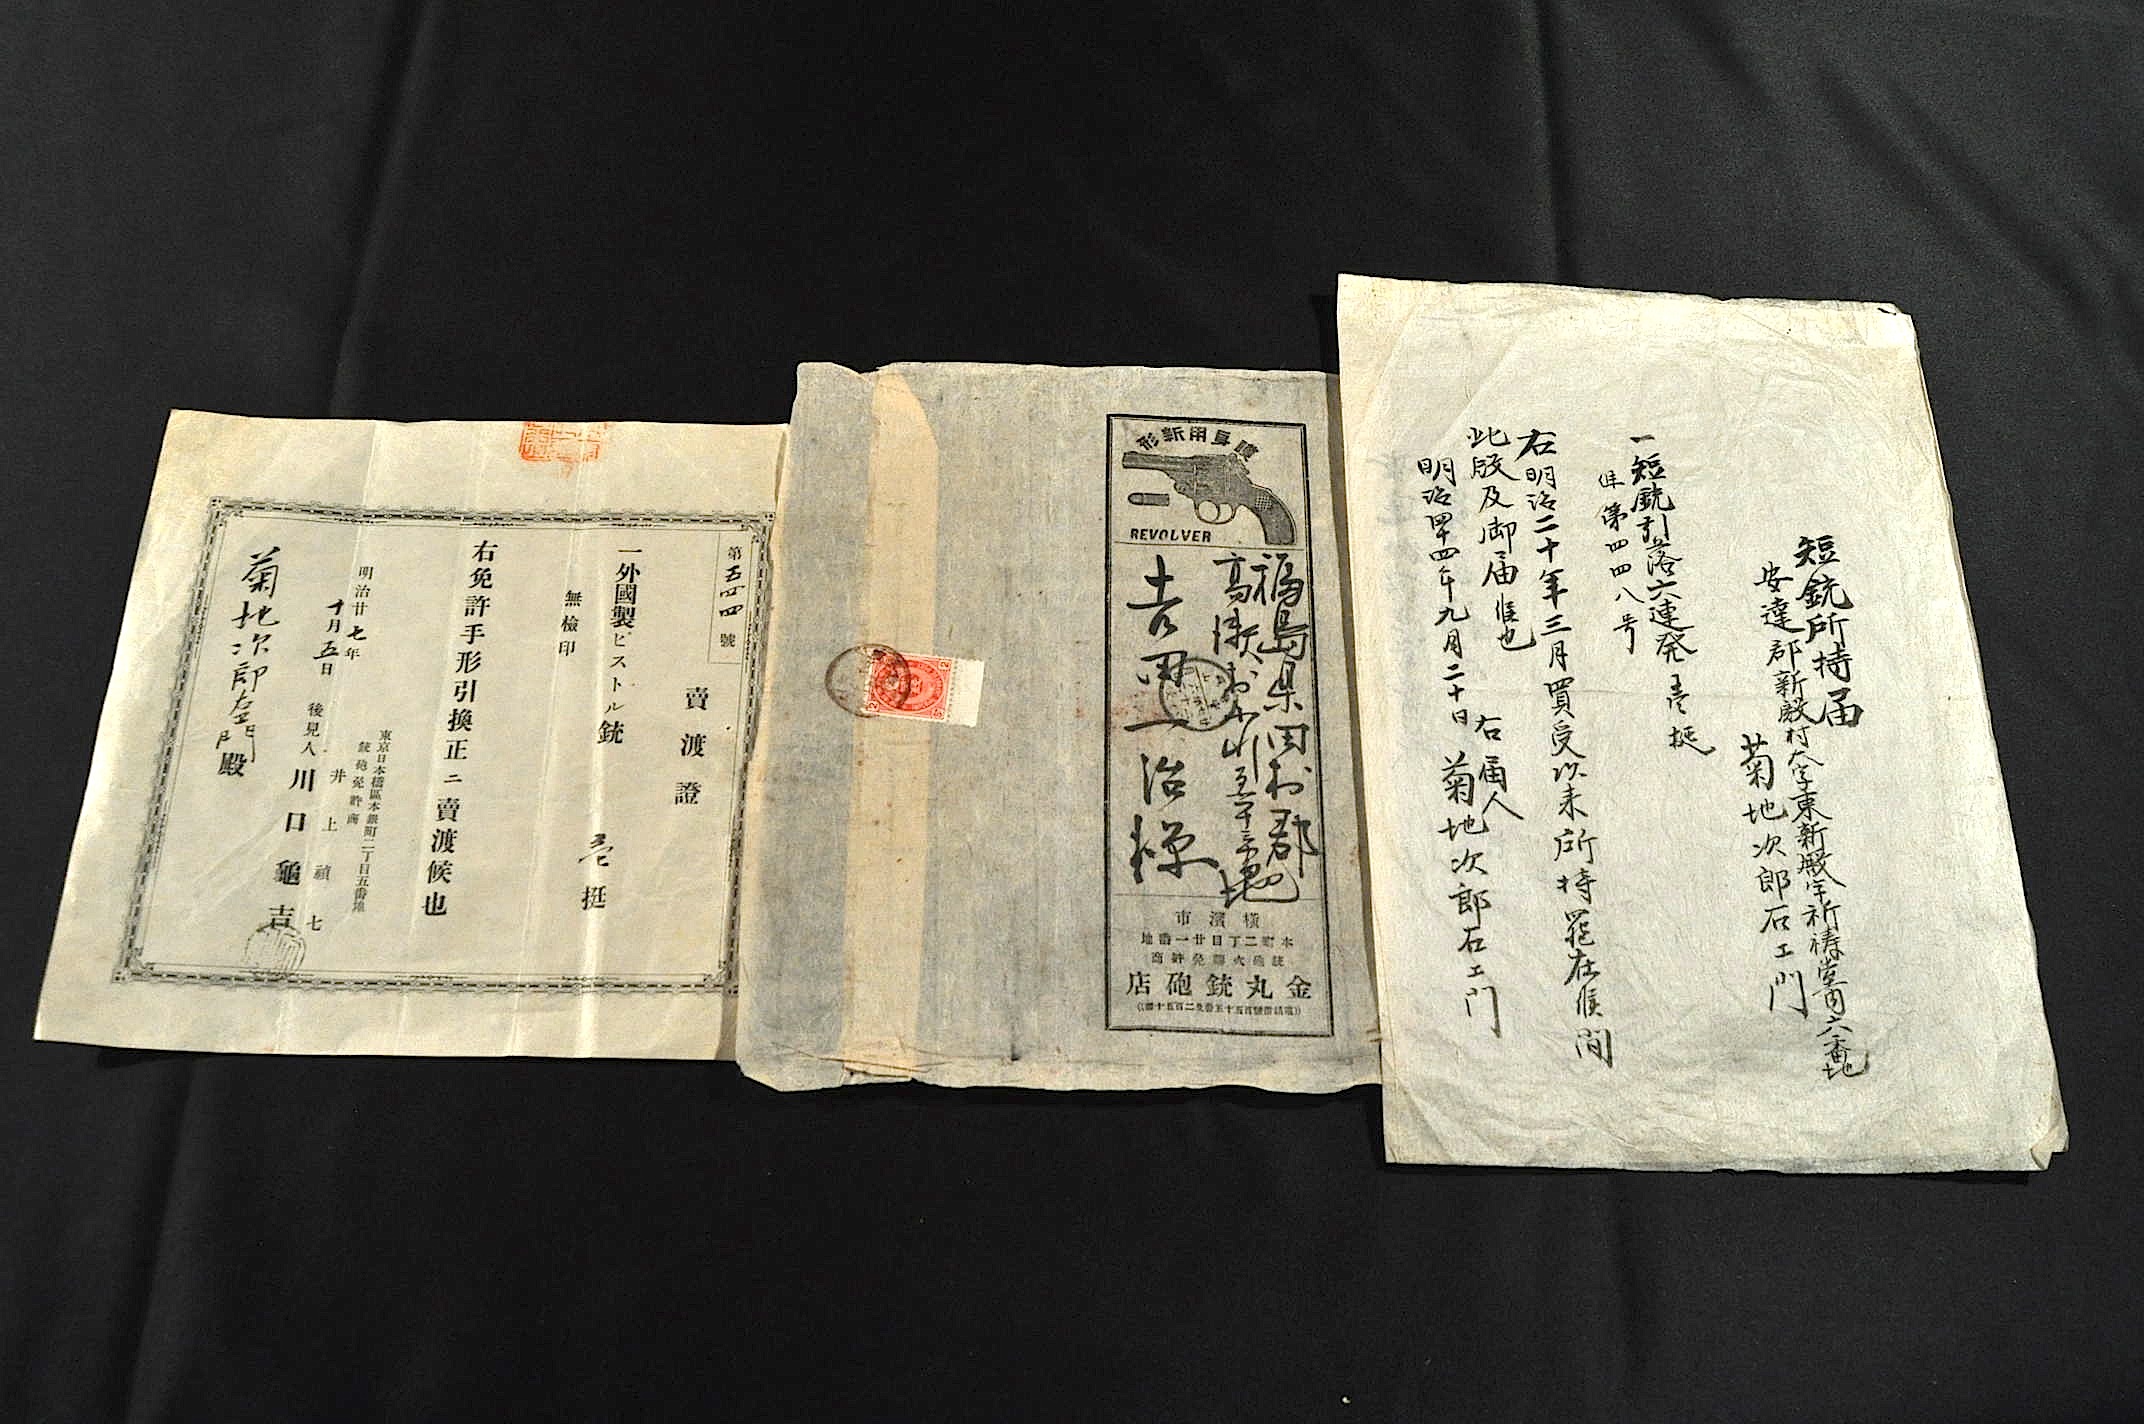 第五四四號
賣渡證
一外國製ピストル銃 壱挺
無檢印
右免許手形引換正ニ賣渡候也
明治廿七年
十月五日
東京日本橋區本銀町二丁目五番地
銃砲免許商
井上禎七
後見人 川口龜吉
菊地次郎左エ門殿
護身用新形
REVOLVER
福島県田村郡
吉田一治様
橫濱市
本町二丁目廿一番地
銃砲火藥免許商
金丸銃砲店
短銃所持届
安達郡新殿村大字東新殿字祈祷堂内六番地
菊地次郎右エ門
一短銃引落六連発 壱挺
但第四四八号
右明治二十年三月買受以来所持罷在候間
此段及御届候也
右届人
明治四十四年九月二十日 菊地次郎右エ門